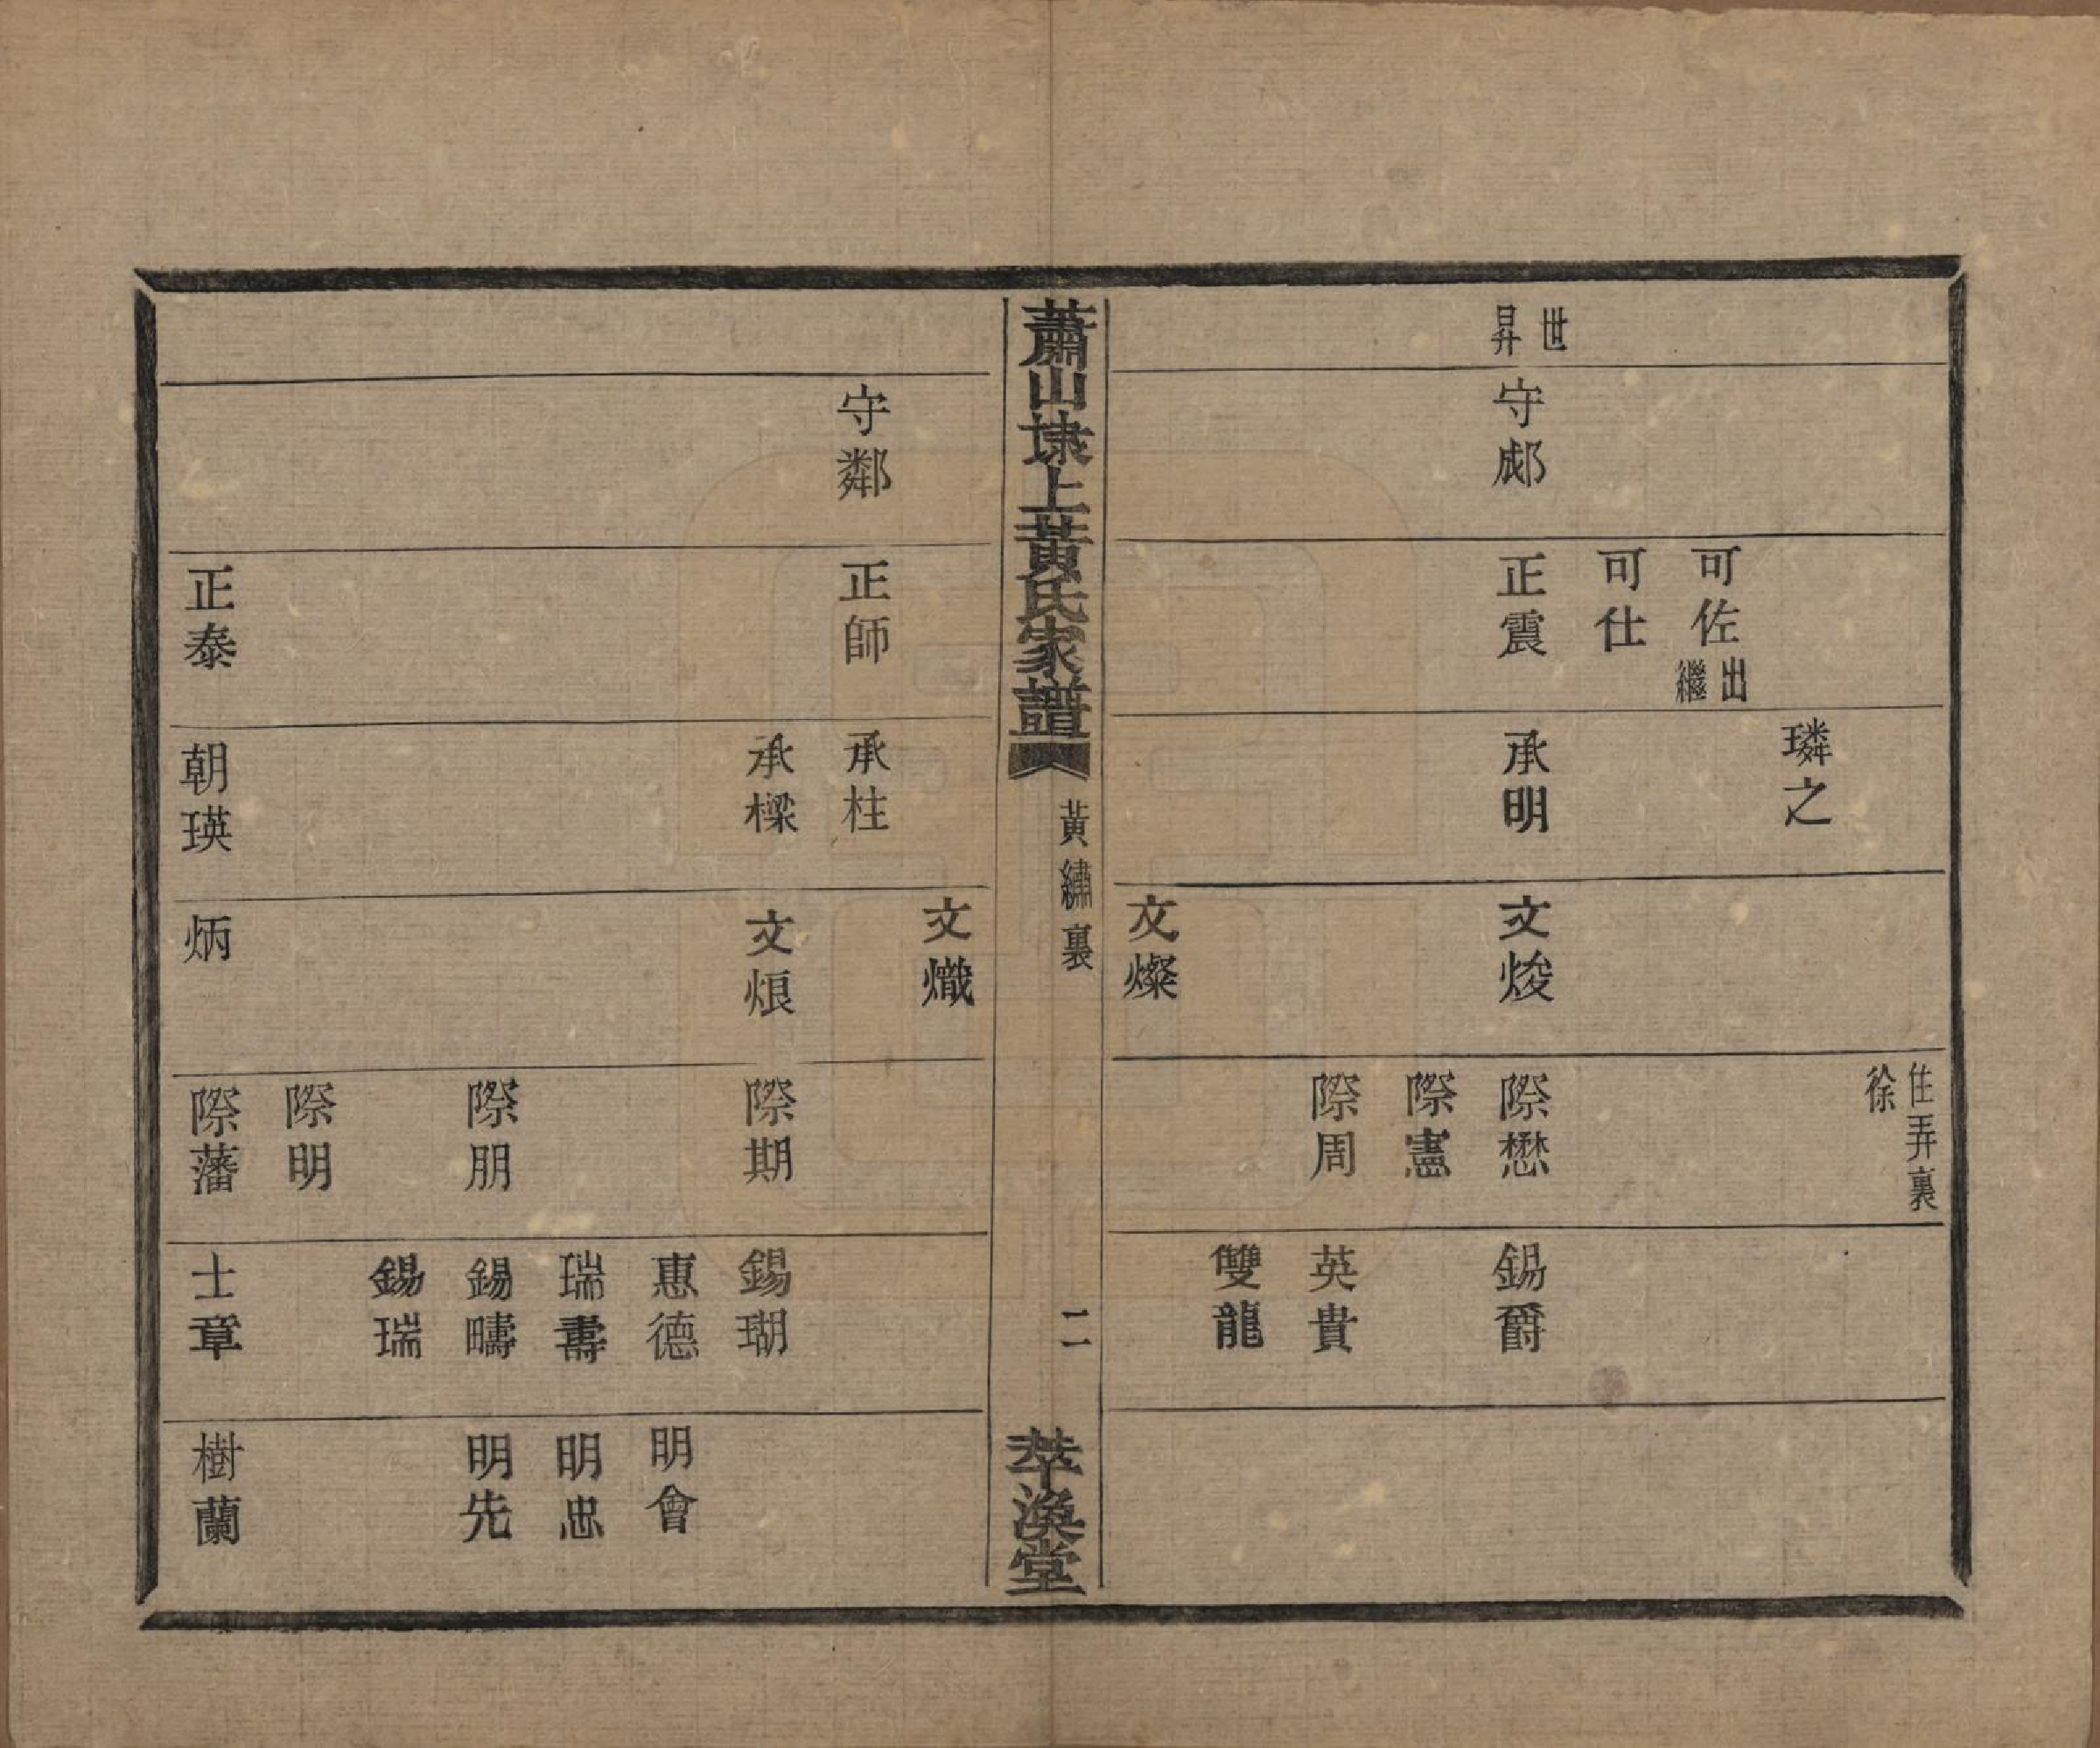 世昇
守郕
可佐 出繼
可仕
正震
璘之
承明
文焌
文燦
住弄裏徐
際懋
際憲
際周
錫爵
英貴
雙龍
蕭山埭上黃氏家譜
黃繡裏
二
萃渙堂
守鄰
正師
正泰
承柱
承樑
朝瑛
文熾
文烺
炳
際期
際朋
際明
際藩
錫瑚
惠德
瑞壽
錫疇
錫瑞
士章
明會
明忠
明先
樹蘭